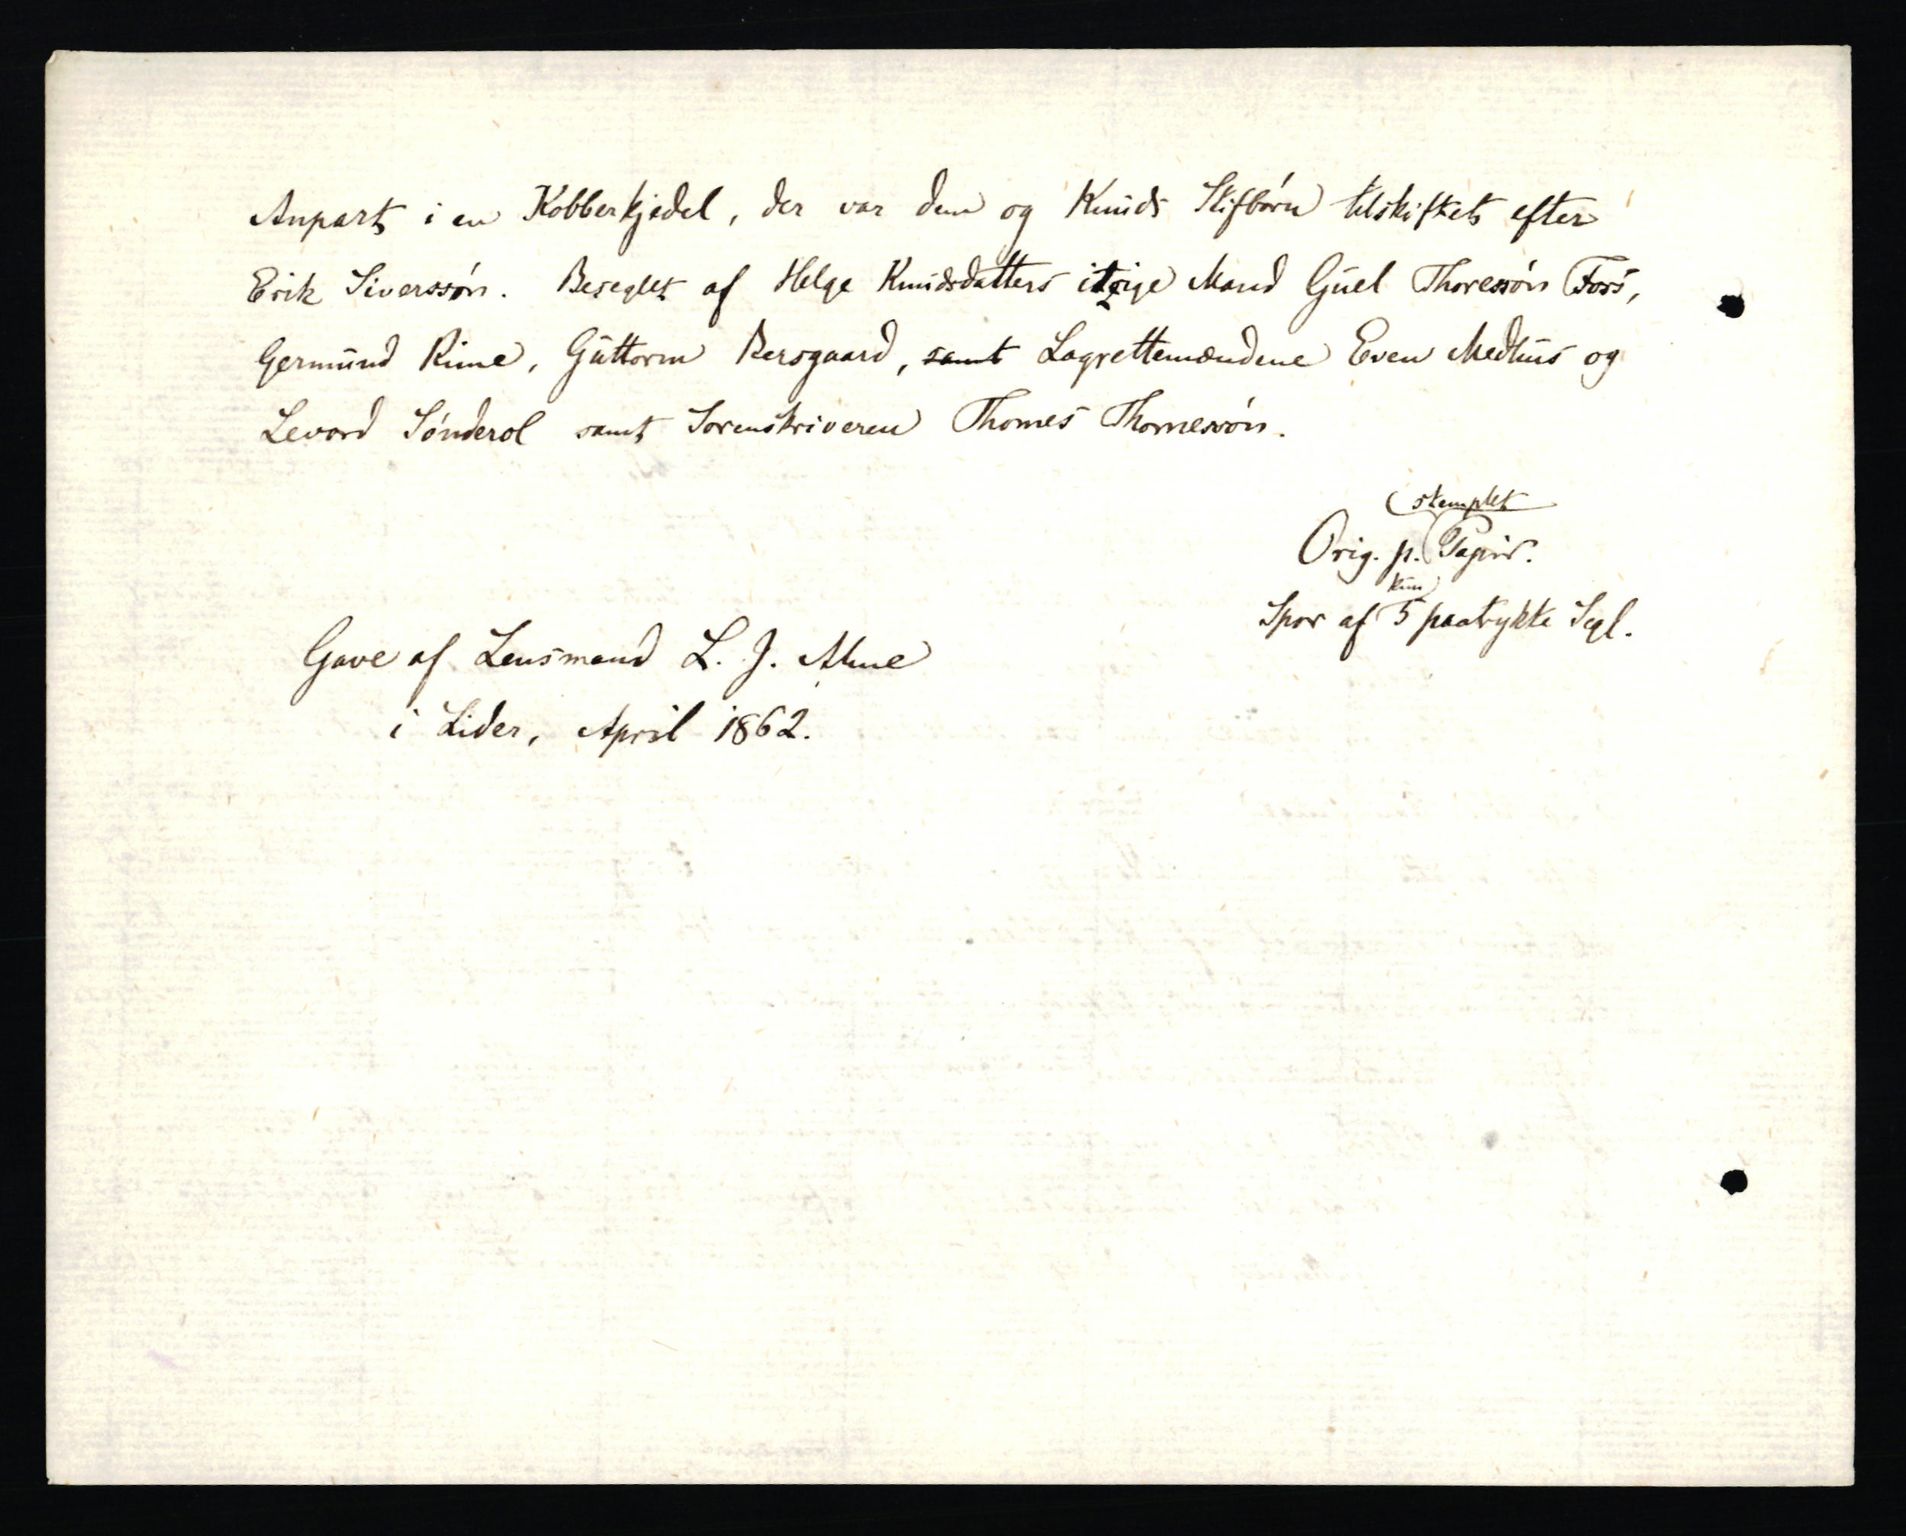 Anpart i en Kobberkjedel, der var dem og Knuds Stifbørn tilskiftet efter
Erik Siverssøn. Beseglet af Helge Knudsdatters Mand Guel Thoressøn Fors,
Germund Rime, Guttorm Bersgaard, samt Lagrettemændene Even Medhus og
Levord Sønderol samt Sorenskriveren Thomes Thomessøn.
stemplet
Orig. p. Papir.
kun
Spor af 5 paatrykte Segl.
Gave af Lensmand L. J. Alme
i Lider, April 1862.